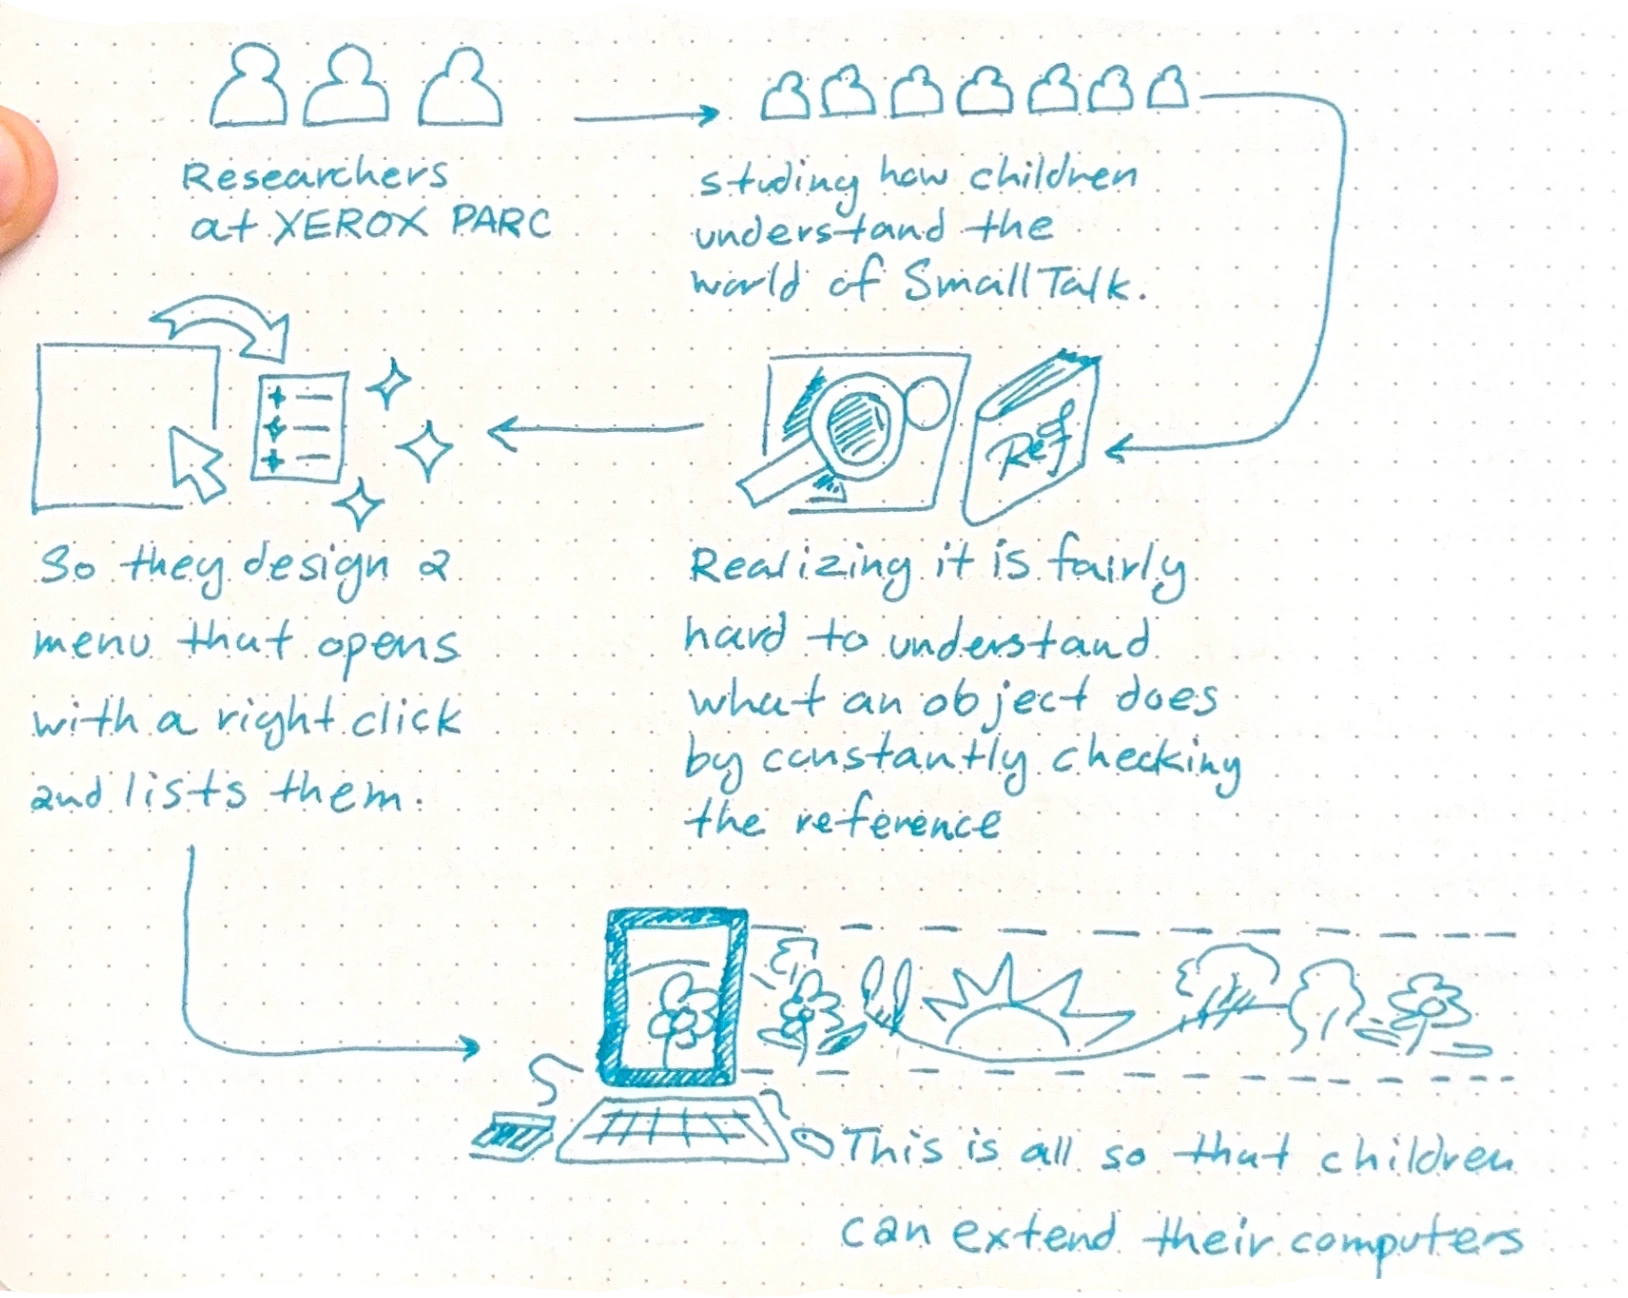 Researchers
at XEROX PARC
studing how children
understand the
world of SmallTalk.
Ref
Realizing it is fairly
hard to understand
what an object does
by constantly checking
the reference
So they design a
menu that opens
with a right click
and lists them.
This is all so that children
can extend their computers